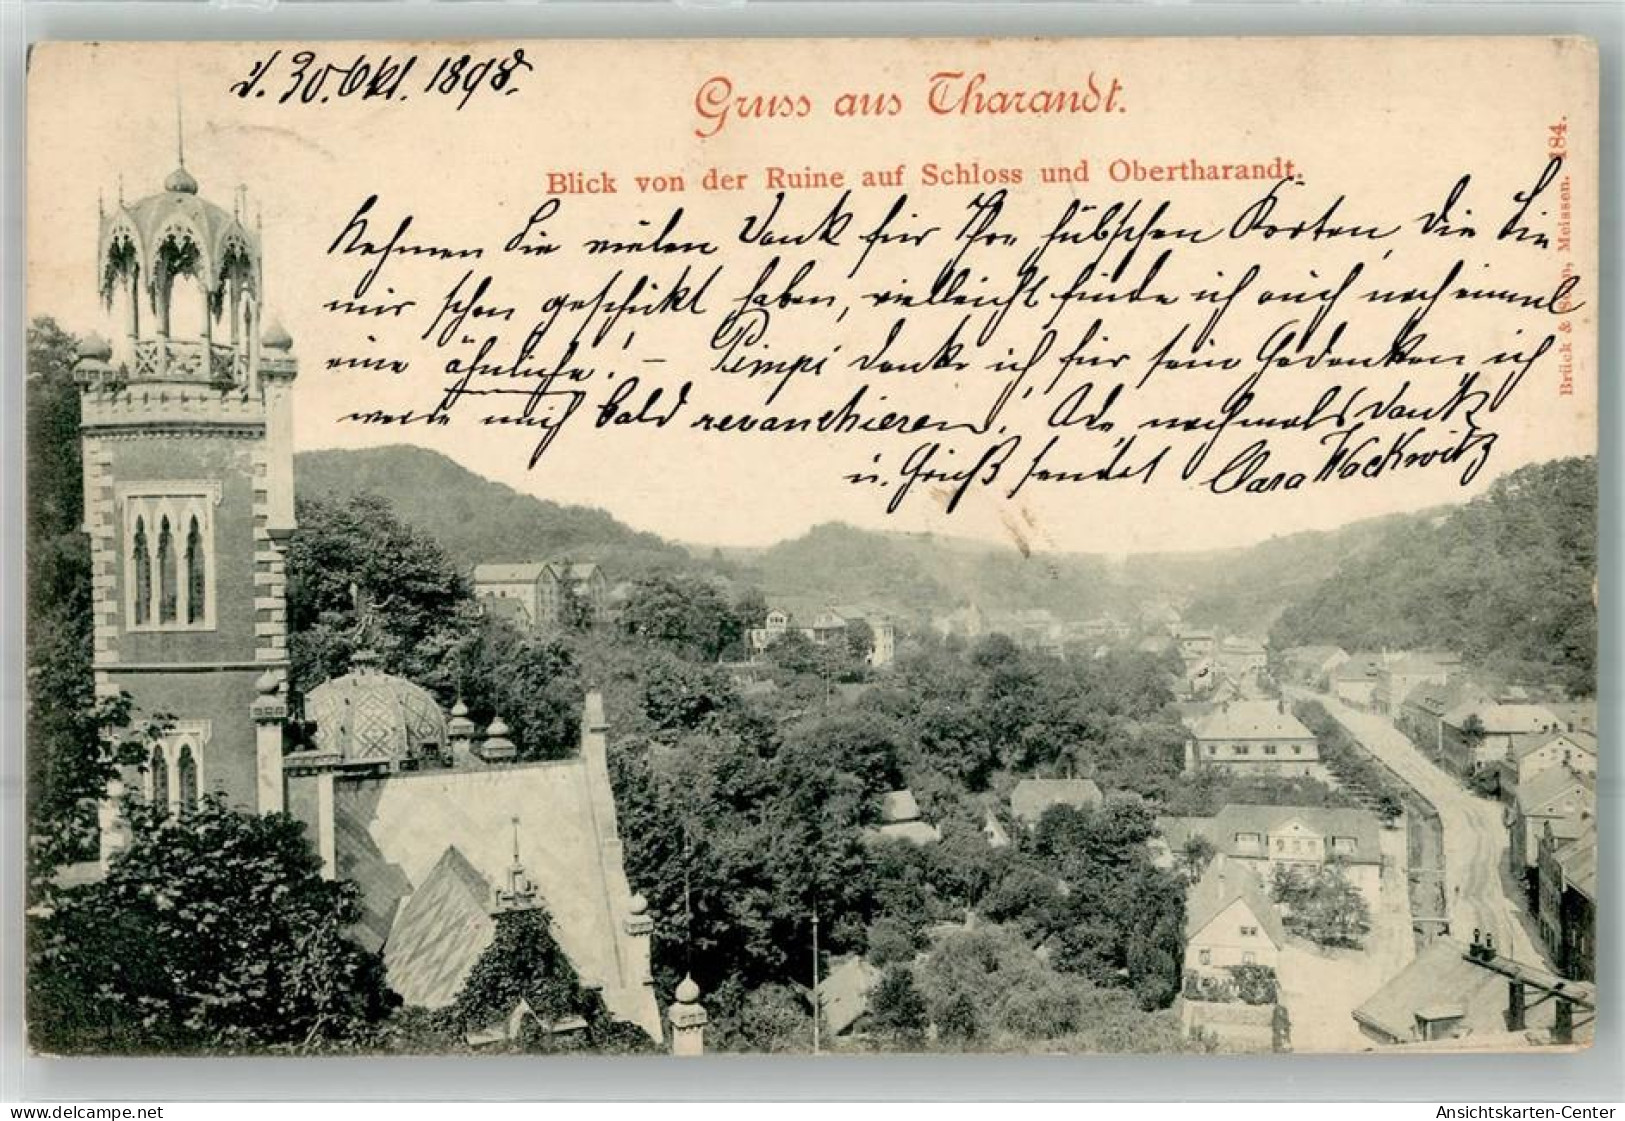 d. 30. Okt. 1898.
Gruss aus Tharandt.
Blick von der Ruine auf Schloss und Obertharandt.
Nehmen Sie vielen Dank für Ihre hübschen Karten, die Sie
mir schon geschickt haben, vielleicht finde ich auch noch einmal
eine ähnliche! – Pimpi danke ich für sein Gedenken ich
werde mich bald revanchieren! Ade nochmals Dank
u. Gruß sendet Clara Wackwitz
Brück & Sohn, Meissen. 184.
www.delcampe.net
Ansichtskarten-Center